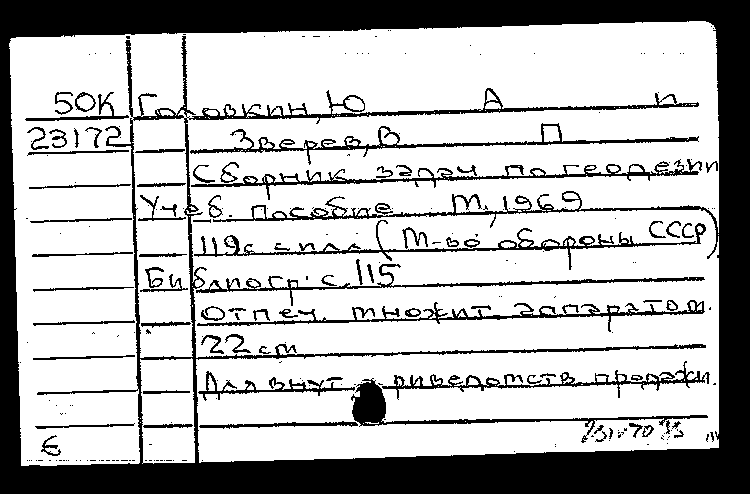 50К Головкин, Ю А и
23172 Зверев, В П
Сборник задач по геодезии
Учеб. пособие М., 1969
119с с илл (М-во обороны СССР)
Библиогр: с. 115
Отпеч. множит аппаратом.
22 см
Для внут риведомств продажи.
€